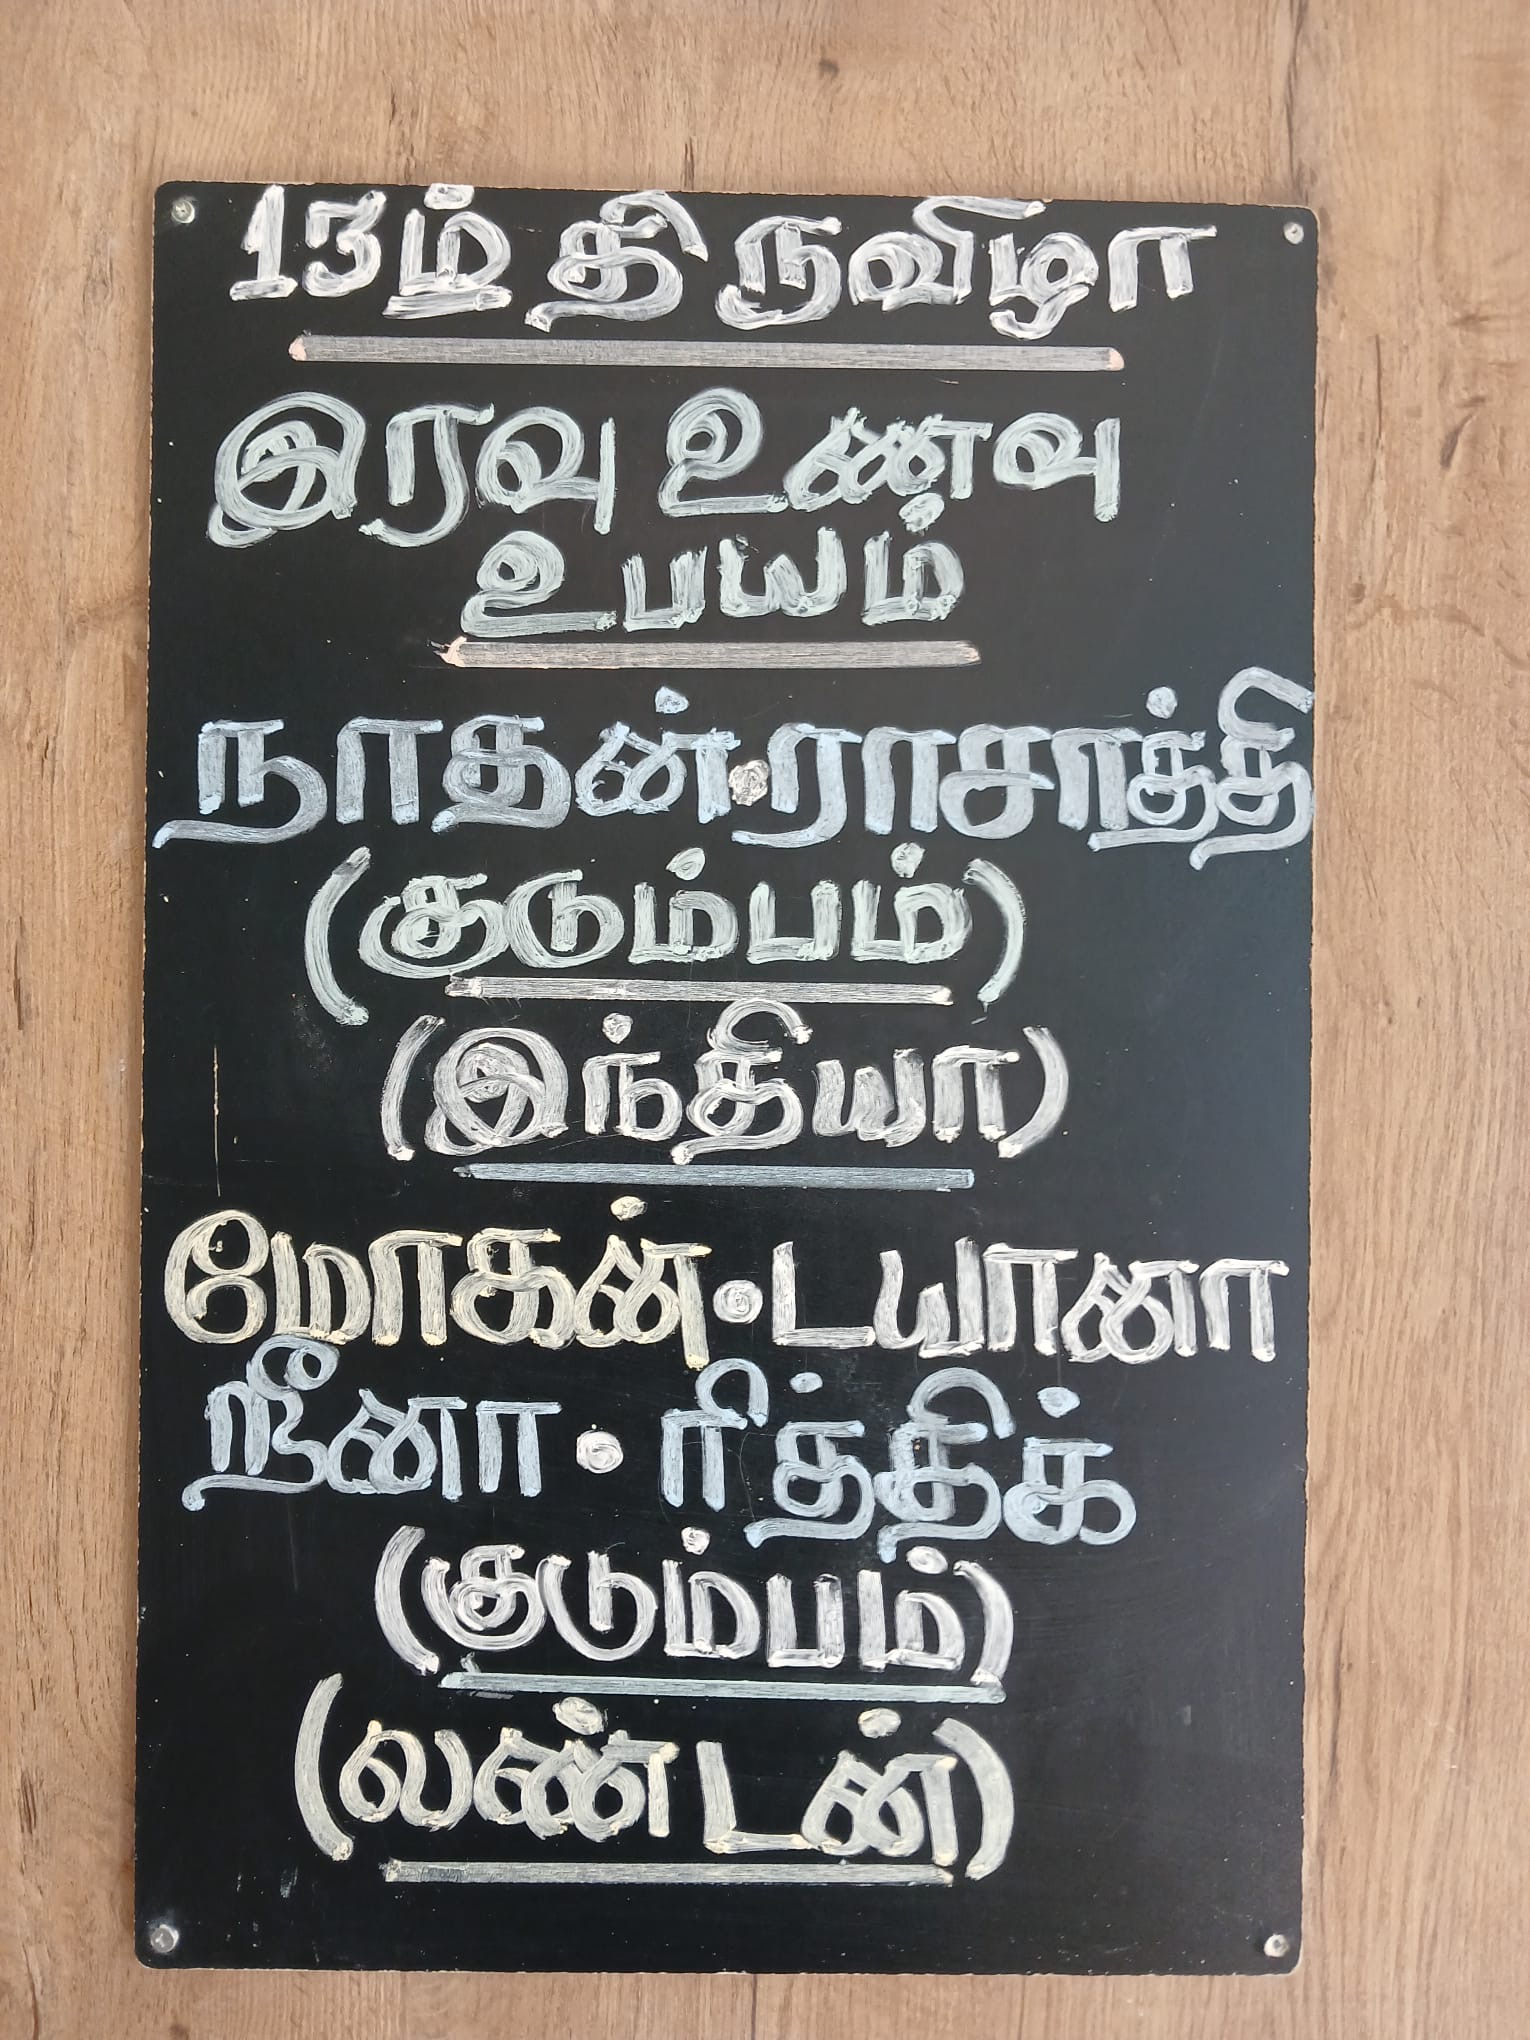 13ம் திருவிழா
இரவு உணவு
உபயம்
நாதன்.ராசாத்தி
(குடும்பம்)
(இந்தியா)
மோகன்.டயானா
றீனா. ரித்திக்
(குடும்பம்)
(லண்டன்)